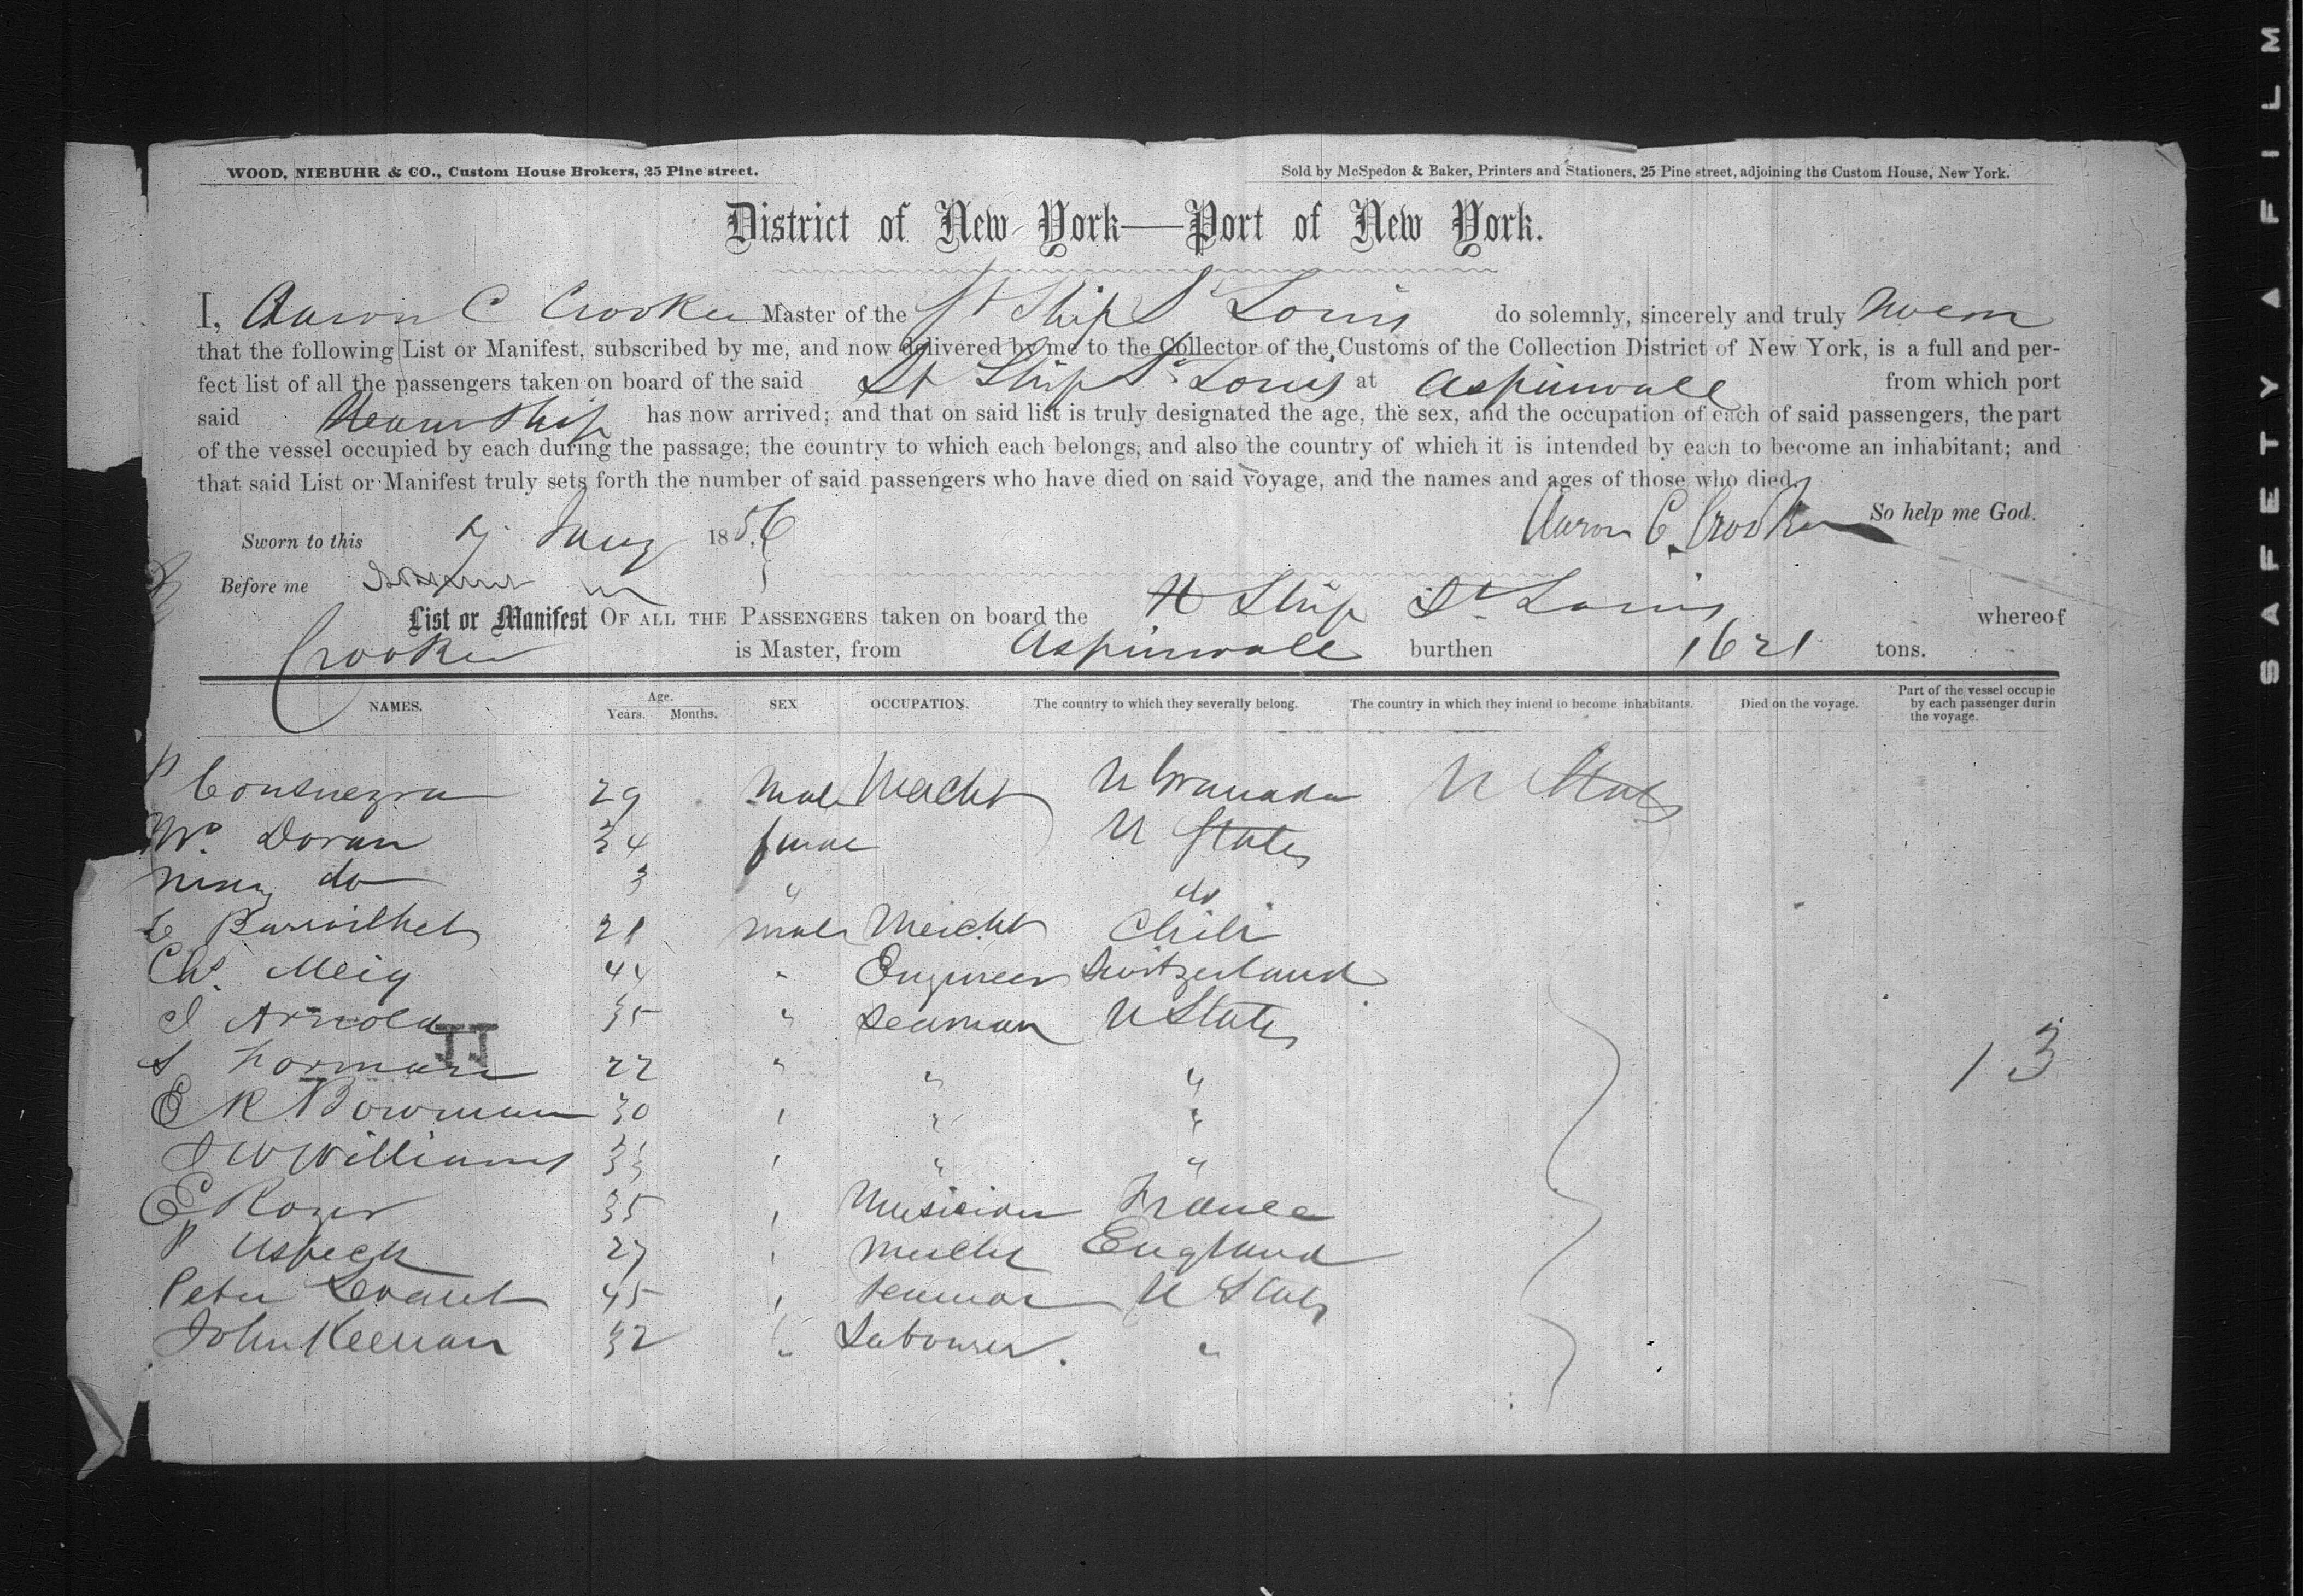 WOOD, NIEBUHR & CO., Custom House Brokers, 25 Pine street.
Sold by McSpedon & Baker, Printers and Stationers, 25 Pine street, adjoining the Custom House, New York.
District of New York—Port of New York.
I, Aaron C Crocker Master of the St Ship St Louis do solemnly, sincerely and truly swear
that the following List or Manifest, subscribed by me, and now delivered by me to the Collector of the Customs of the Collection District of New York, is a full and per-
fect list of all the passengers taken on board of the said St Ship St Louis at Aspinwall from which port
said Steam Ship has now arrived; and that on said list is truly designated the age, the sex, and the occupation of each of said passengers, the part
of the vessel occupied by each during the passage; the country to which each belongs, and also the country of which it is intended by each to become an inhabitant; and
that said List or Manifest truly sets forth the number of said passengers who have died on said voyage, and the names and ages of those who died.
Aaron C. Crocker So help me God.
Sworn to this 1856
Before me
List or Manifest OF ALL THE PASSENGERS taken on board the St Ship St Louis whereof
Crocker is Master, from Aspinwall burthen 1621 tons.
NAMES. Age. Years. Months. SEX OCCUPATION. The country to which they severally belong. The country in which they intend to become inhabitants. Died on the voyage. Part of the vessel occupie
by each passenger durin
the voyage.
P 29 Male Mercht N Granada U States
Doran 34 female U States
do 3 " do
21 male Mercht Chili
Chs. Meig 44 " Engineer Switzerland
J Arnold 35 " Seaman U States
JJ
S Forman 22 " " "
E R Bowman 30 " " "
J W Williams 33 " " "
E Rozer 35 " Musician France
P Uspeck 27 " England
Peter 45 " Seaman U States
John Keenan 32 " Labourer. "
13
SAFETY FILM